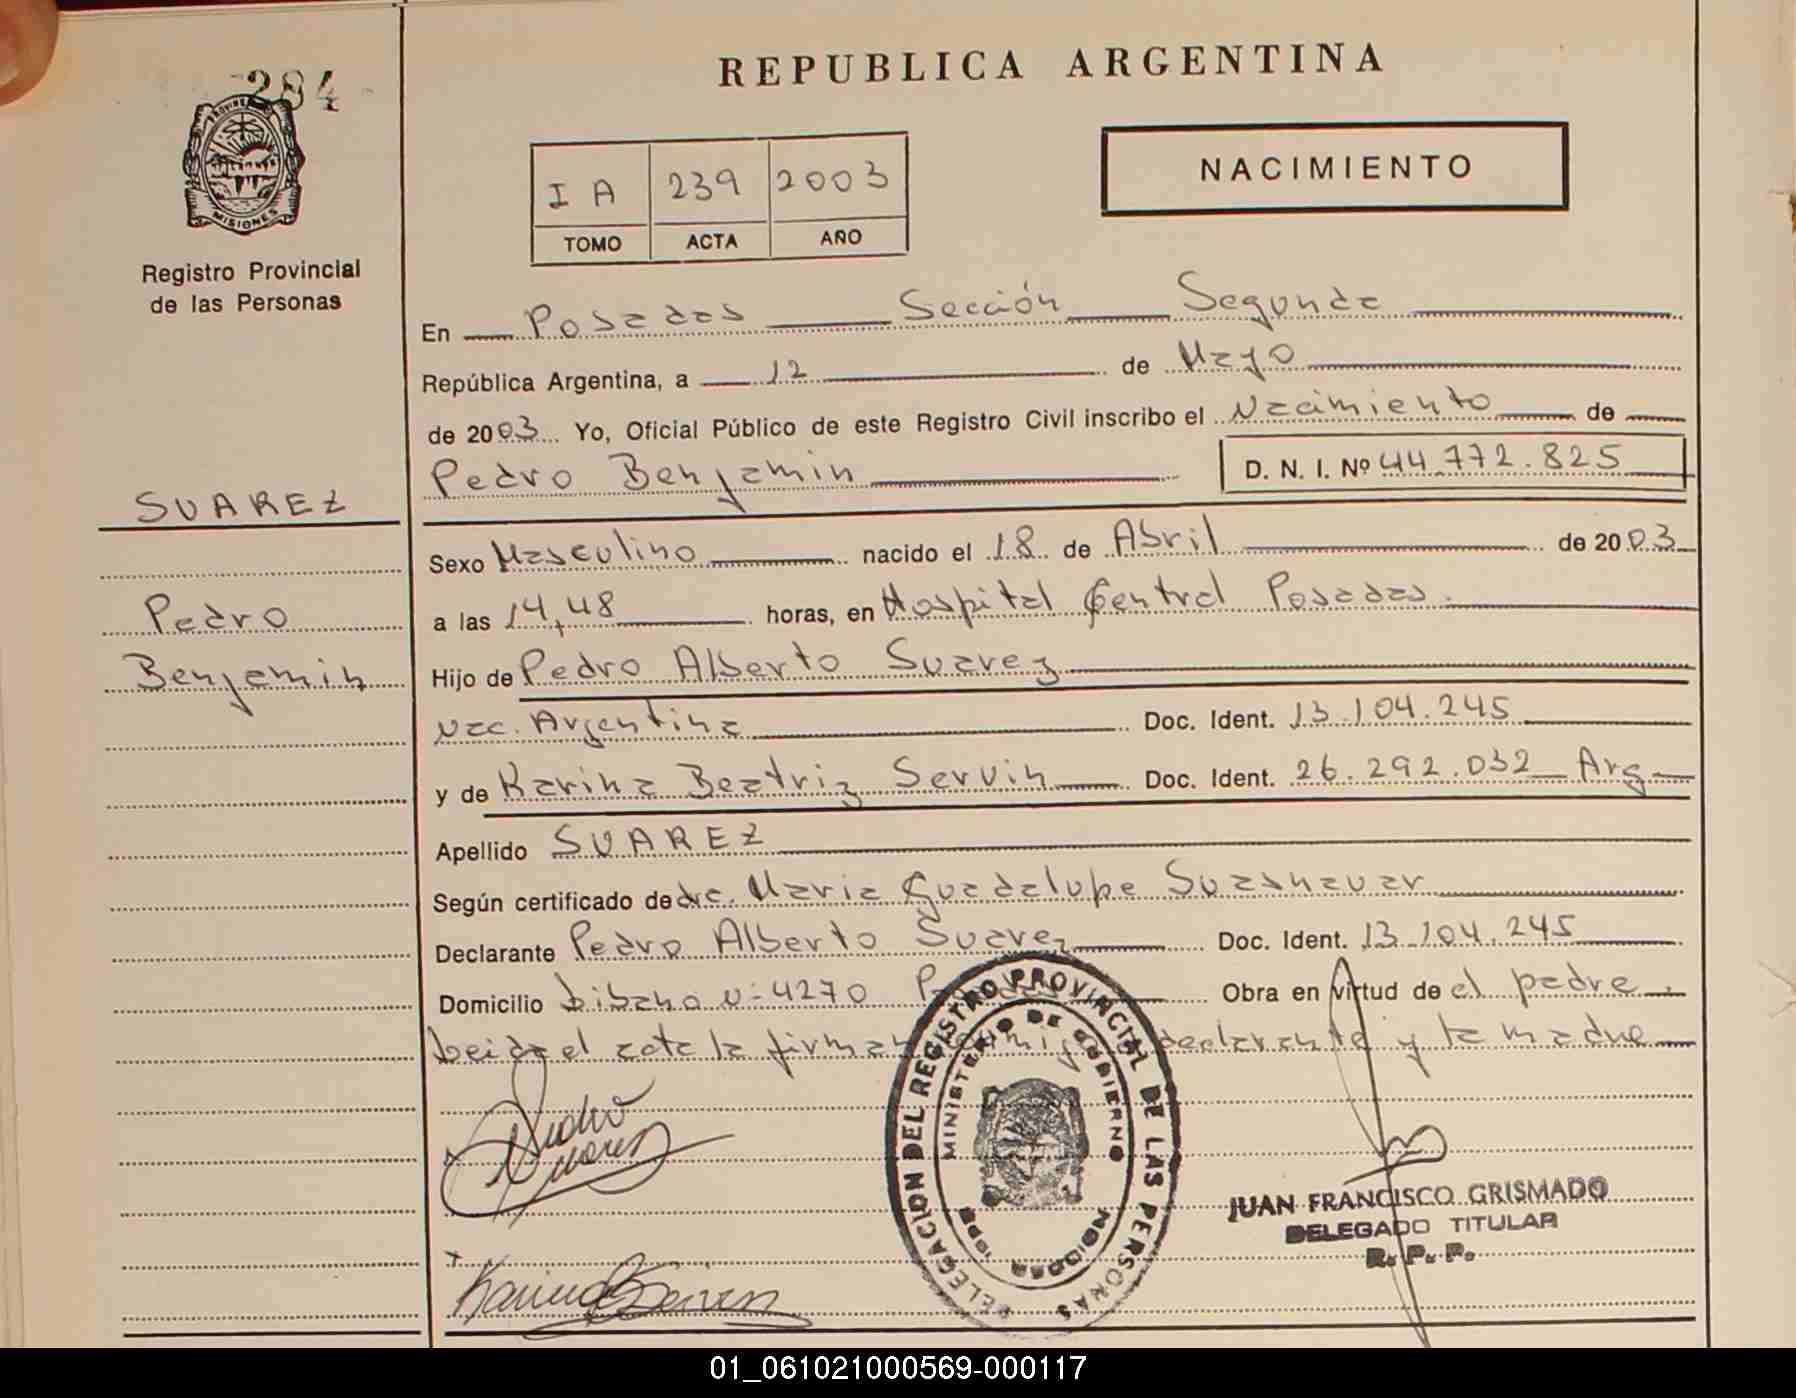 284
PROVINCIA
MISIONES
Registro Provincial
de las Personas
SUAREZ
Pedro
Benjamin
REPUBLICA ARGENTINA
I A 239 2003
TOMO ACTA AÑO
NACIMIENTO
En Posadas Sección Segunda
República Argentina, a 12 de Mayo
de 2003 Yo, Oficial Público de este Registro Civil inscribo el Nacimiento de
Pedro Benjamin D. N. I. Nº 44.772.825
Sexo Masculino nacido el 18 de Abril de 2003
a las 14,48 horas, en Hospital Central Posadas.
Hijo de Pedro Alberto Suarez
Nac. Argentina Doc. Ident. 13.104.245
y de Karina Beatriz Servin Doc. Ident. 26.292.032 Arg
Apellido SUAREZ
Según certificado de dra. Maria Guadalupe Suasnavar
Declarante Pedro Alberto Suarez Doc. Ident. 13.104.245
Domicilio Libano Nº 4270 Obra en virtud de el padre.
Leida el acta la firman declarante y la madre
Pedro
Suarez
DELEGACION DEL REGISTRO PROVINCIAL DE LAS PERSONAS
MINISTERIO DE GOBIERNO
JUAN FRANCISCO GRISMADO
DELEGADO TITULAR
R. P. P.
01_061021000569-000117